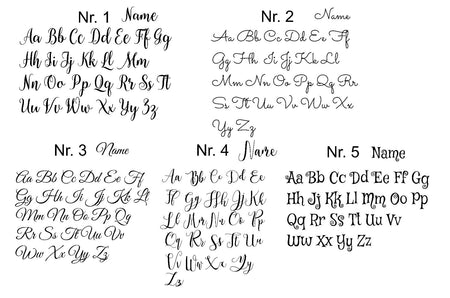 Nr. 1 Name
Aa Bb Cc Dd Ee Ff Gg
Hh Ii Jj Kk Ll Mm
Nn Oo Pp Qq Rr Ss Tt
Uu Vv Ww Xx Yy Zz
Nr. 2 Name
Aa Bb Cc Dd Ee Ff
Gg Hh Ii Jj Kk Ll
Mm Nn Oo Pp Qq Rr
Ss Tt Uu Vv Ww Xx
Yy Zz
Nr. 3 Name
Aa Bb Cc Dd Ee Ff
Gg Hh Ii Jj Kk Ll
Mm Nn Oo Pp Qq
Rr Ss Tt Uu Vv
Ww Xx Yy Zz
Nr. 4 Name
Aa Bb Cc Dd Ee
Ff Gg Hh Ii Jj Kk
Ll Mm Nn Oo Pp
Qq Rr Ss Tt Uu
Vv Ww Xx Yy
Zz
Nr. 5 Name
Aa Bb Cc Dd Ee Ff Gg
Hh Ij Jj Kk Ll Mm Oo Pp
Qq Rr Ss Tt Uu Vv
Ww Xx Yy Zz